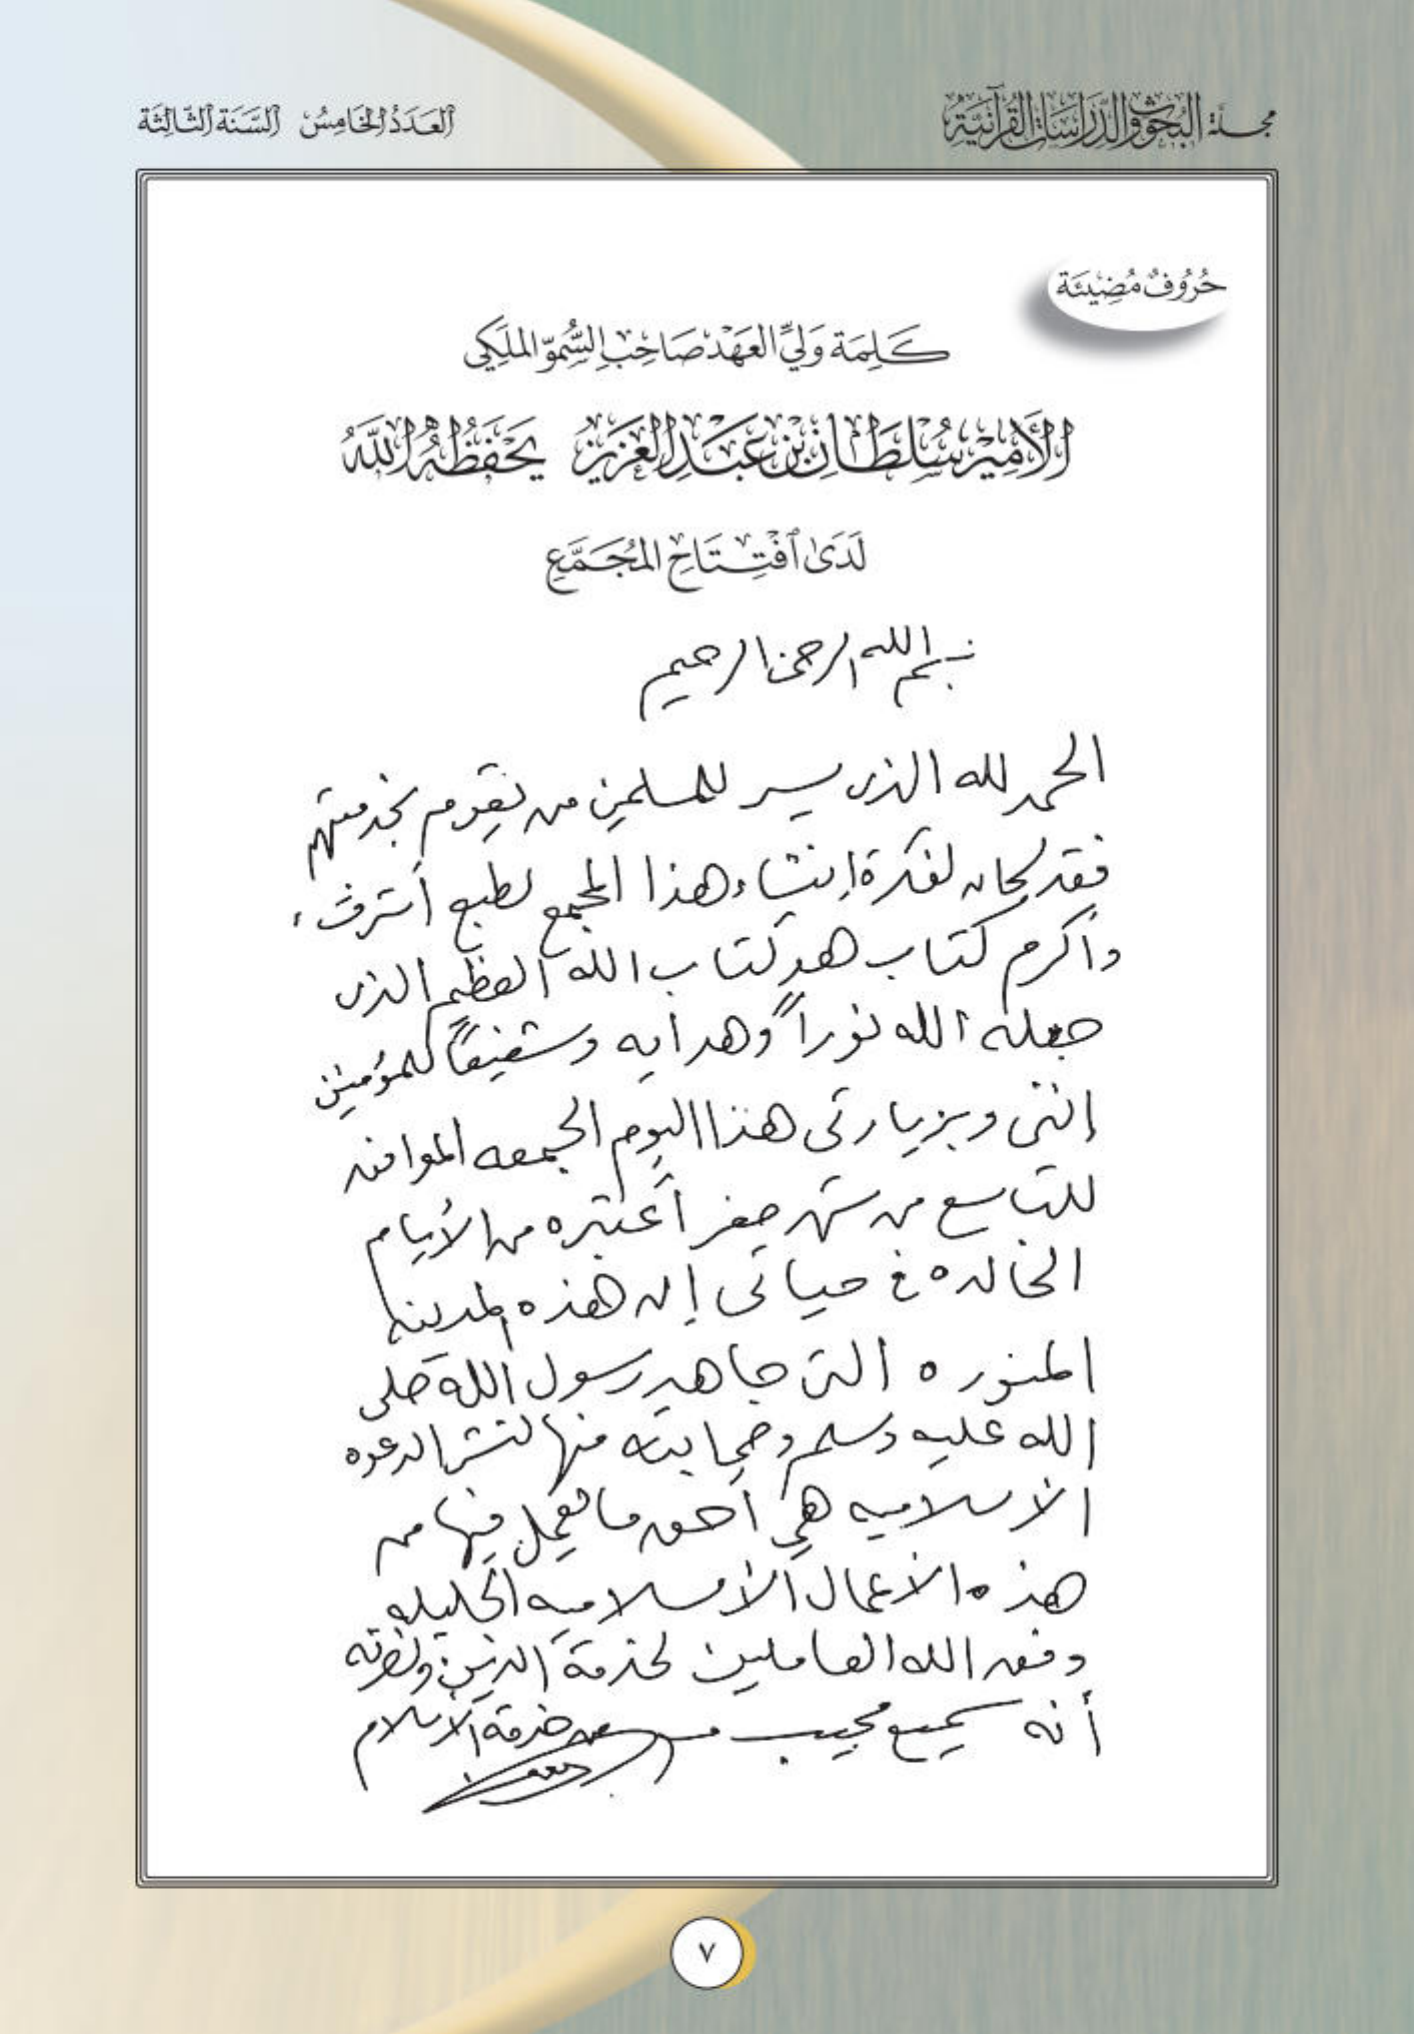 مجلة البحوث والدراسات القرآنية
العَدَدُ الخَامِسُ السَّنَة الثَّالِثَة
حُرُوفٌ مُضِيئَة
كَلِمَة وَلِيِّ العَهْد صَاحِب السُّمُوّ المَلَكِي
الأَمِيْر سُلطَان بْن عَبْد العَزِيْز يَحْفَظُهُ اللَّهُ
لَدَىٰ ٱفْتِتَاحِ المُجَمَّعِ
بسم الله الرحمن الرحيم
الحمد لله الذى يسر للمسلمين من يقوم بخدمتهم
فقد كان لفكرة إنشاء هذا المجمع لطبع أشرف
وأكرم كتاب هو كتاب الله العظيم الذى
جعله الله نوراً وهدايه وشفيعاً للمؤمنين
إننى وبزيارتى هذا اليوم الجمعه الموافق
للتاسع من شهر صفر أعتبره من الأيام
الخالده في حياتى إن هذه المدينه
المنوره التى جاهد رسول الله صلى
الله عليه وسلم وصحابته منها لنشر الدعوه
الاسلاميه هي أحق ما نعمل فيها من
هذه الأعمال الأسلاميه الجليله
وفق الله العاملين لخدمة الدين ونصرته
أنه سميع مجيب خدمة الأسلام
٧